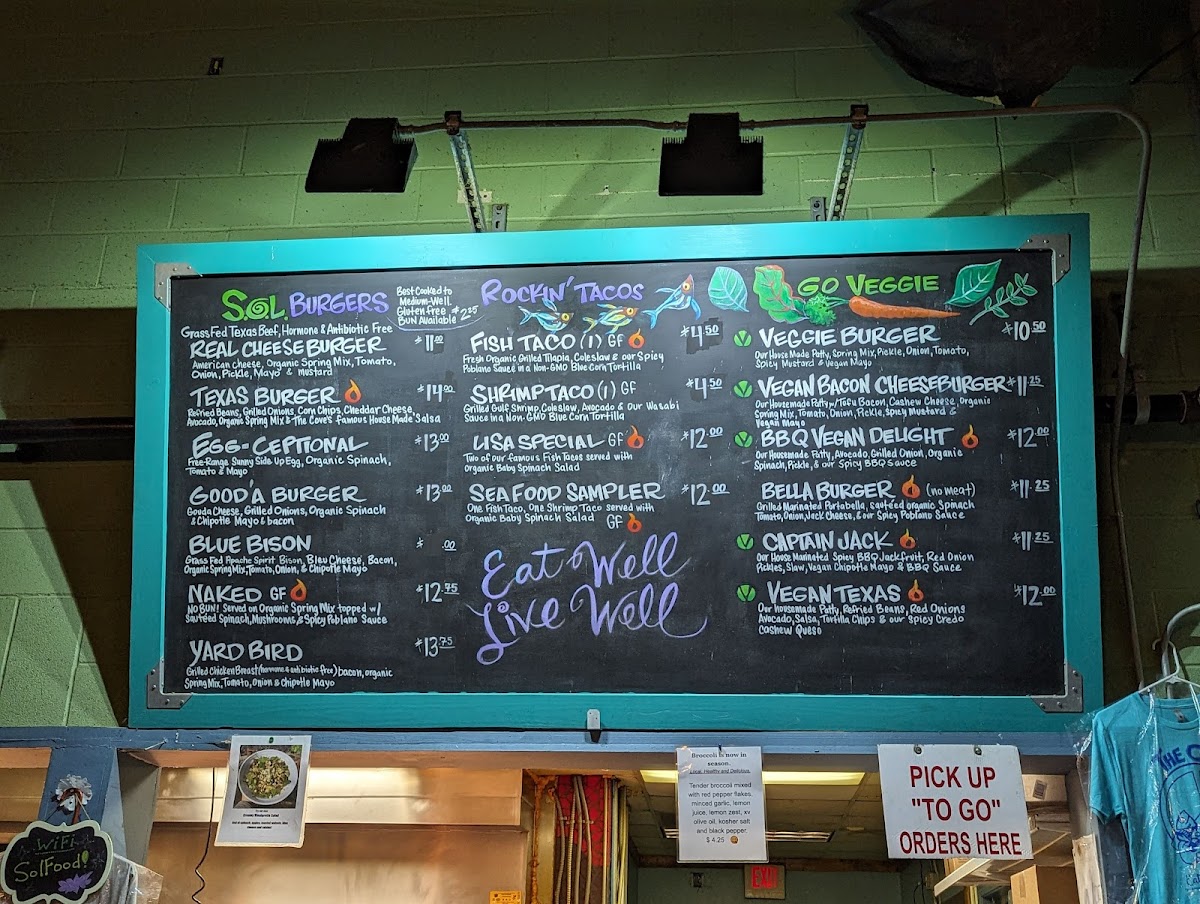 SOL BURGERS
Best Cooked to
Medium-Well.
Gluten free $2.25
BUN Available
Grass Fed Texas Beef, Hormone & Antibiotic Free
REAL CHEESEBURGER $11.00
American Cheese, Organic Spring Mix, Tomato,
Onion, Pickle, Mayo & mustard
TEXAS BURGER $14.00
Refried Beans, Grilled Onions, Corn Chips, Cheddar Cheese,
Avocado, Organic Spring Mix & The Cove's Famous House Made Salsa
EGG-CEPTIONAL $13.00
Free-Range Sunny Side Up Egg, Organic Spinach,
Tomato & Mayo
GOOD'A BURGER $13.00
Gouda Cheese, Grilled Onions, Organic Spinach
& Chipotle Mayo & bacon
BLUE BISON $ .00
Grass Fed Apache Spirit Bison, Bleu Cheese, Bacon,
Organic Spring Mix, Tomato, Onion, & Chipotle Mayo
NAKED GF $12.75
NO BUN! Served on Organic Spring Mix topped w/
sautéed Spinach, Mushrooms, & Spicy Poblano Sauce
YARD BIRD $13.75
Grilled Chicken Breast (hormone & antibiotic free) bacon, organic
Spring Mix, Tomato, Onion & Chipotle Mayo
ROCKIN' TACOS
FISH TACO (1) GF $4.50
Fresh Organic Grilled Tilapia, Coleslaw & our Spicy
Poblano Sauce in a Non-GMO Blue Corn Tortilla
SHRIMP TACO (1) GF $4.50
Grilled Gulf Shrimp, Coleslaw, Avocado & Our Wasabi
Sauce in a Non-GMO Blue Corn Tortilla
LISA SPECIAL GF $12.00
Two of our famous Fish Tacos served with
Organic Baby Spinach Salad
SEAFOOD SAMPLER $12.00
One Fish Taco, One Shrimp Taco served with
Organic Baby Spinach Salad GF
Eat Well
Live Well
GO VEGGIE
VEGGIE BURGER $10.50
Our House Made Patty, Spring Mix, Pickle, Onion, Tomato,
Spicy Mustard & Vegan Mayo
VEGAN BACON CHEESEBURGER $11.25
Our Housemade Patty w/ Tofu Bacon, Cashew Cheese, Organic
Spring Mix, Tomato, Onion, Pickle, Spicy Mustard &
Vegan Mayo
BBQ VEGAN DELIGHT $12.00
Our Housemade Patty, Avocado, Grilled Onion, Organic
Spinach, Pickle, & our Spicy BBQ Sauce
BELLA BURGER (no meat) $11.25
Grilled Marinated Portabella, sautéed organic Spinach
Tomato, Onion, Jack Cheese, & our Spicy Poblano Sauce
CAPTAIN JACK $11.25
Our House Marinated Spicy BBQ Jackfruit, Red Onion
Pickles, Slaw, Vegan Chipotle Mayo & BBQ Sauce
VEGAN TEXAS $12.00
Our Housemade Patty, Refried Beans, Red Onions
Avocado, Salsa, Tortilla Chips & our Spicy Credo
Cashew Queso
WiFi
SolFood!
Broccoli is now in
season.
Local, Healthy and Delicious.
Tender broccoli mixed
with red pepper flakes,
minced garlic, lemon
juice, lemon zest, xv
olive oil, kosher salt
and black pepper.
$ 4.25
EXIT
PICK UP
"TO GO"
ORDERS HERE
THE